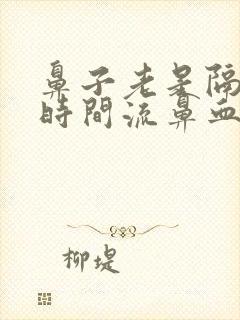 鼻子老是隔
時間流鼻血
柳堤